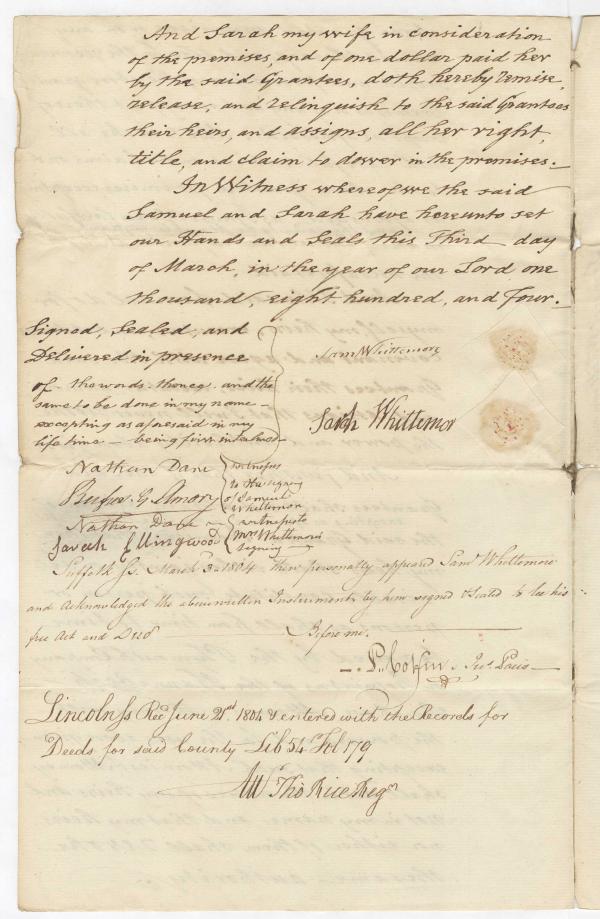 And Sarah my wife in consideration
of the premises, and of one dollar paid her
by the said Grantees, doth hereby remise,
release, and relinquish to the said Grantees
their heirs, and assigns, all her right,
title, and claim to dower in the premises.
In Witness whereof we the said
Samuel and Sarah have hereunto set
our Hands and Seals this Third day
of March, in the year of our Lord one
thousand, eight hundred, and Four.
Signed, Sealed, and
Delivered in presence
of - the words and the
same to be done in my name -
excepting as aforesaid in my
life time - being first interlined
Sam Whittemore
Sarah Whittemor
Nathan Dane
Rufus G Amory
witness
to the signing
of Samuel
Whittemore
Nathan Dane
Sarah Ellingwood
witness to
Mrs Whittemore's
signing
Suffolk Ss. March 3d 1804 then personally appeared Saml Whittemore
and Acknowledged the abovewritten Instrument by him signed & Sealed to be his
free Act and Deed
Before me.
P. Coffin Jus. Pacis
Lincoln Ss Recd June 21st 1804 & entered with the Records for
Deeds for said County Lib 54 Fol 179
Att Tho Rice Regr